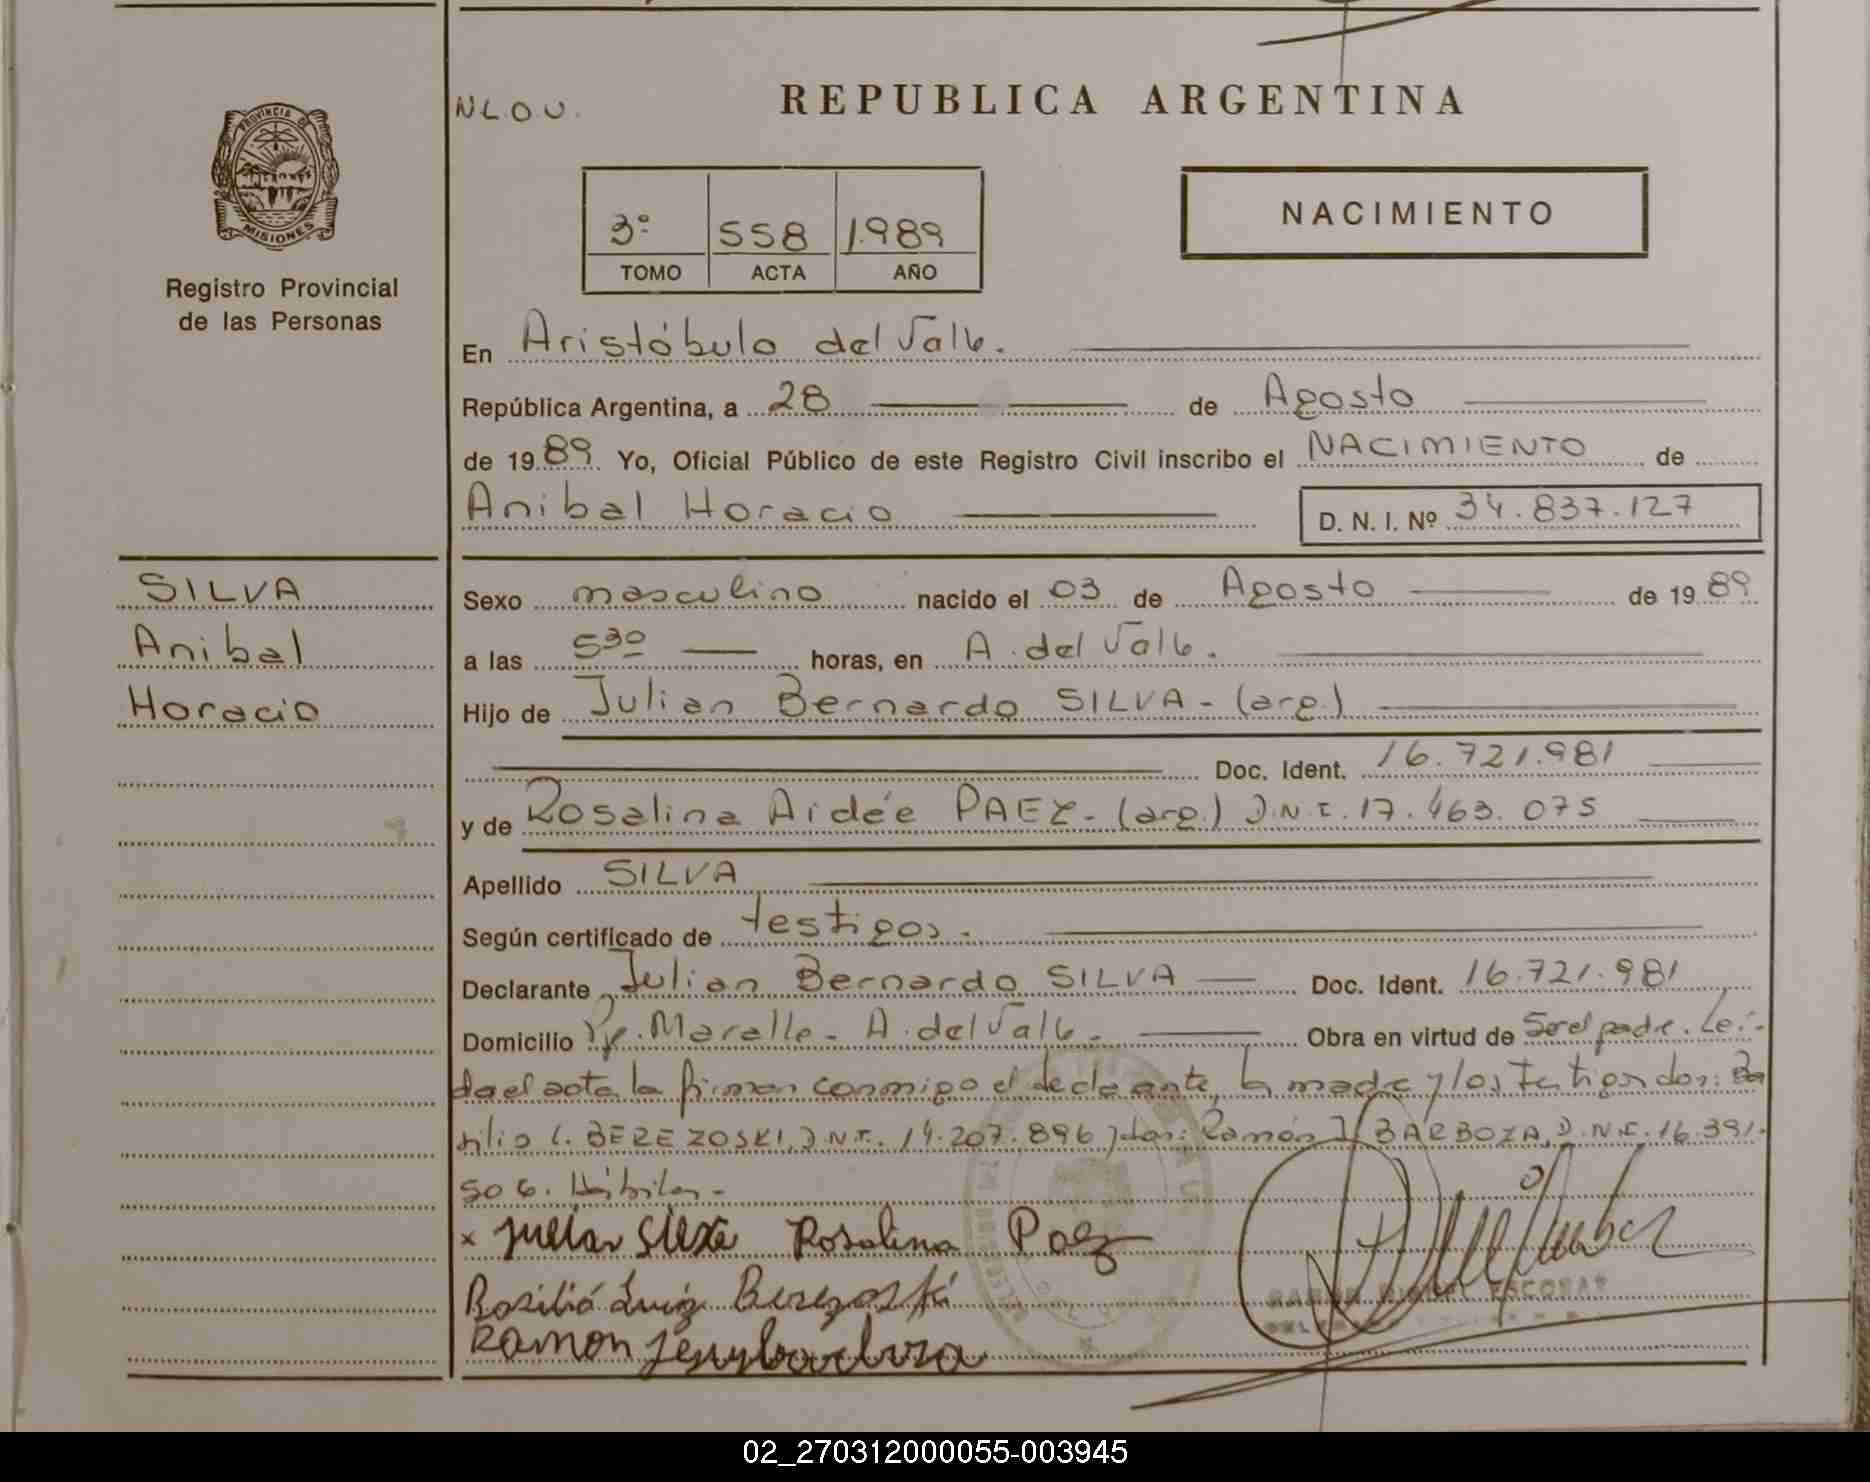 N.L.O.U.
REPUBLICA ARGENTINA
PROVINCIA DE
MISIONES
Registro Provincial
de las Personas
3º 558 1.989
TOMO ACTA AÑO
NACIMIENTO
En Aristóbulo del Valle.
República Argentina, a 28 de Agosto
de 1989. Yo, Oficial Público de este Registro Civil inscribo el NACIMIENTO de
Anibal Horacio D. N. I. Nº 34.837.127
SILVA
Anibal
Horacio
Sexo masculino nacido el 03 de Agosto de 1989
a las 5 30 horas, en A. del Valle.
Hijo de Julian Bernardo SILVA - (arg.)
Doc. Ident. 16.721.981
y de Rosalina Aidée PAEZ - (arg.) D.N.I. 17.463.075
Apellido SILVA
Según certificado de testigos.
Declarante Julian Bernardo SILVA Doc. Ident. 16.721.981
Domicilio A. del Valle. Obra en virtud de Ser el padre. Leí-
da el acta la firman conmigo el declarante, la madre y los testigos don: Ba
silio L. BEREZOSKI, D.N.I. 14.207.896 y don: Ramón J. BARBOZA, D.N.I. 16.391.
506. Hábiles.-
x Julian Silva Rosalina Paez
Basilio Luiz Berezoski
Ramon
RAMON ESCOBAR
02_270312000055-003945